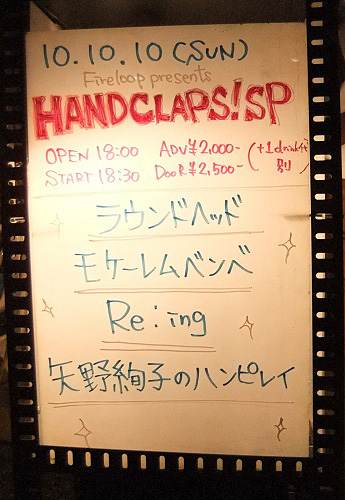 10.10.10 (SUN)
Fireloop presents
HANDCLAPS!SP
OPEN 18:00 ADV¥2,000- (+1drink代
START 18:30 DOOR¥2,500- 別)
ラウンドヘッド
モケーレムベンベ
Re:ing
矢野絢子のハンピレイ